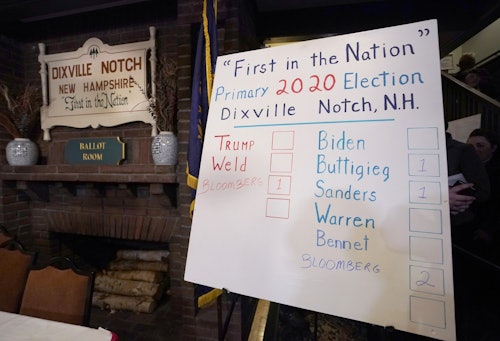 DIXVILLE NOTCH
NEW HAMPSHIRE
First in the Nation
BALLOT
ROOM
"First in the Nation"
Primary 2020 Election
Dixville Notch, N.H.
TRUMP
Weld
BLOOMBERG 1
Biden
Buttigieg 1
Sanders 1
Warren
Bennet
BLOOMBERG 2